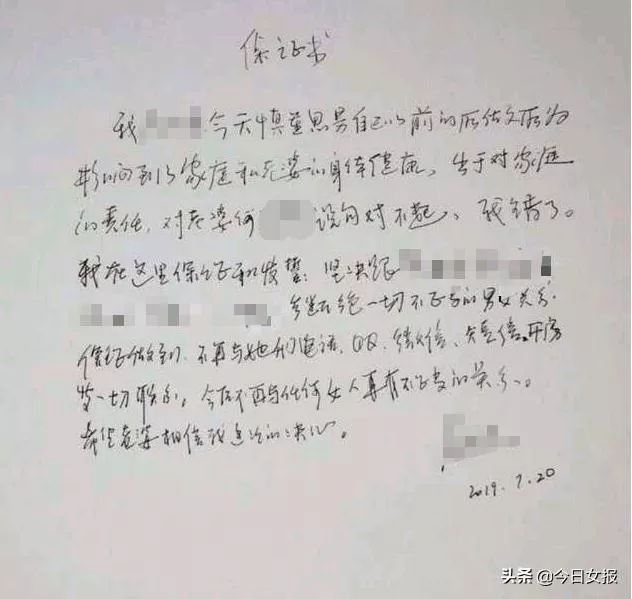 保证书
我 今天慎重思考自己以前的所做文所为
影响到了家庭和老婆的身体健康，出于对家庭
的责任，对老婆何 说句对不起、我错了。
我在这里保证和发誓：坚决跟
断绝一切不正当的男女关系.
保证做到，不再与她们电话、QQ、微信、短信、开房
等一切联系，今后不再与任何女人再有不正当的关系。
希望老婆相信我这次的决心。
2019.7.20
头条 @今日女报